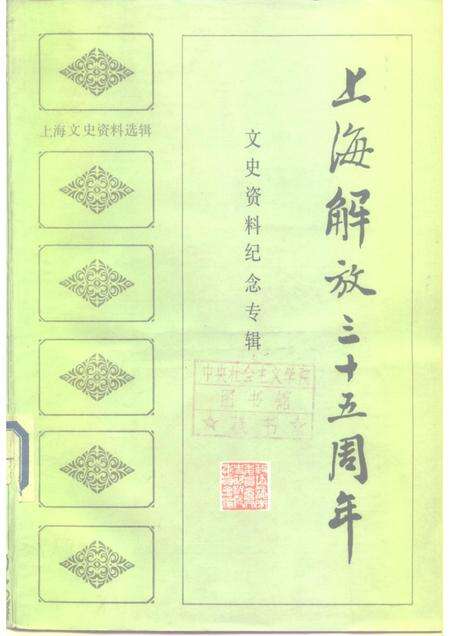 上海文史资料选辑
上海解放三十五周年
文史资料纪念专辑
中央社会主义学院
图书馆
藏书